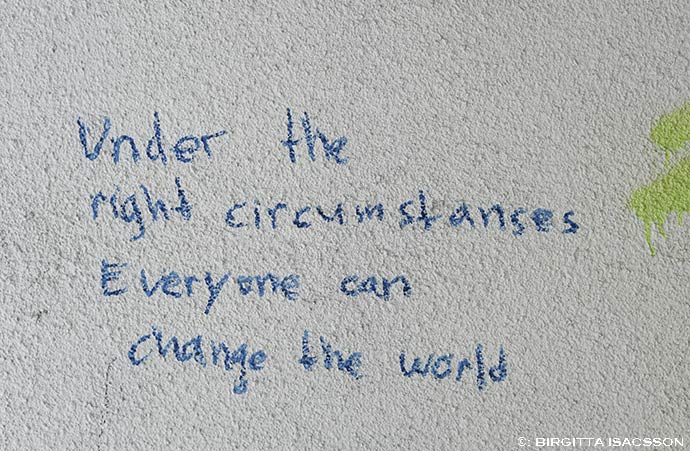 Under the
right circumstanses
Everyone can
change the world
©: BIRGITTA ISACSSON